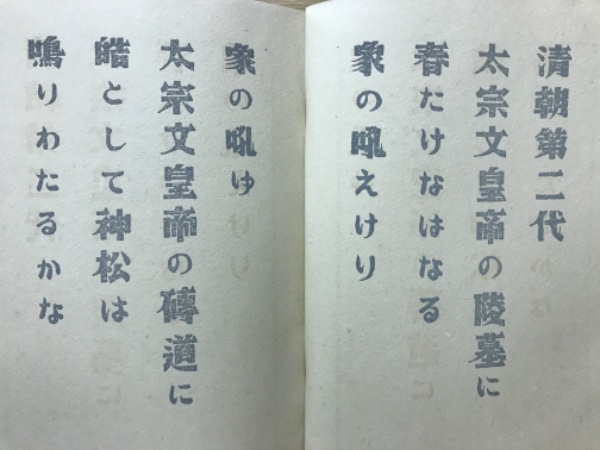 清朝第二代
太宗文皇帝の陵墓に
春たけなはなる
象の吼えけり
象の吼ゆ
太宗文皇帝の磚道に
皓として神松は
鳴りわたるかな